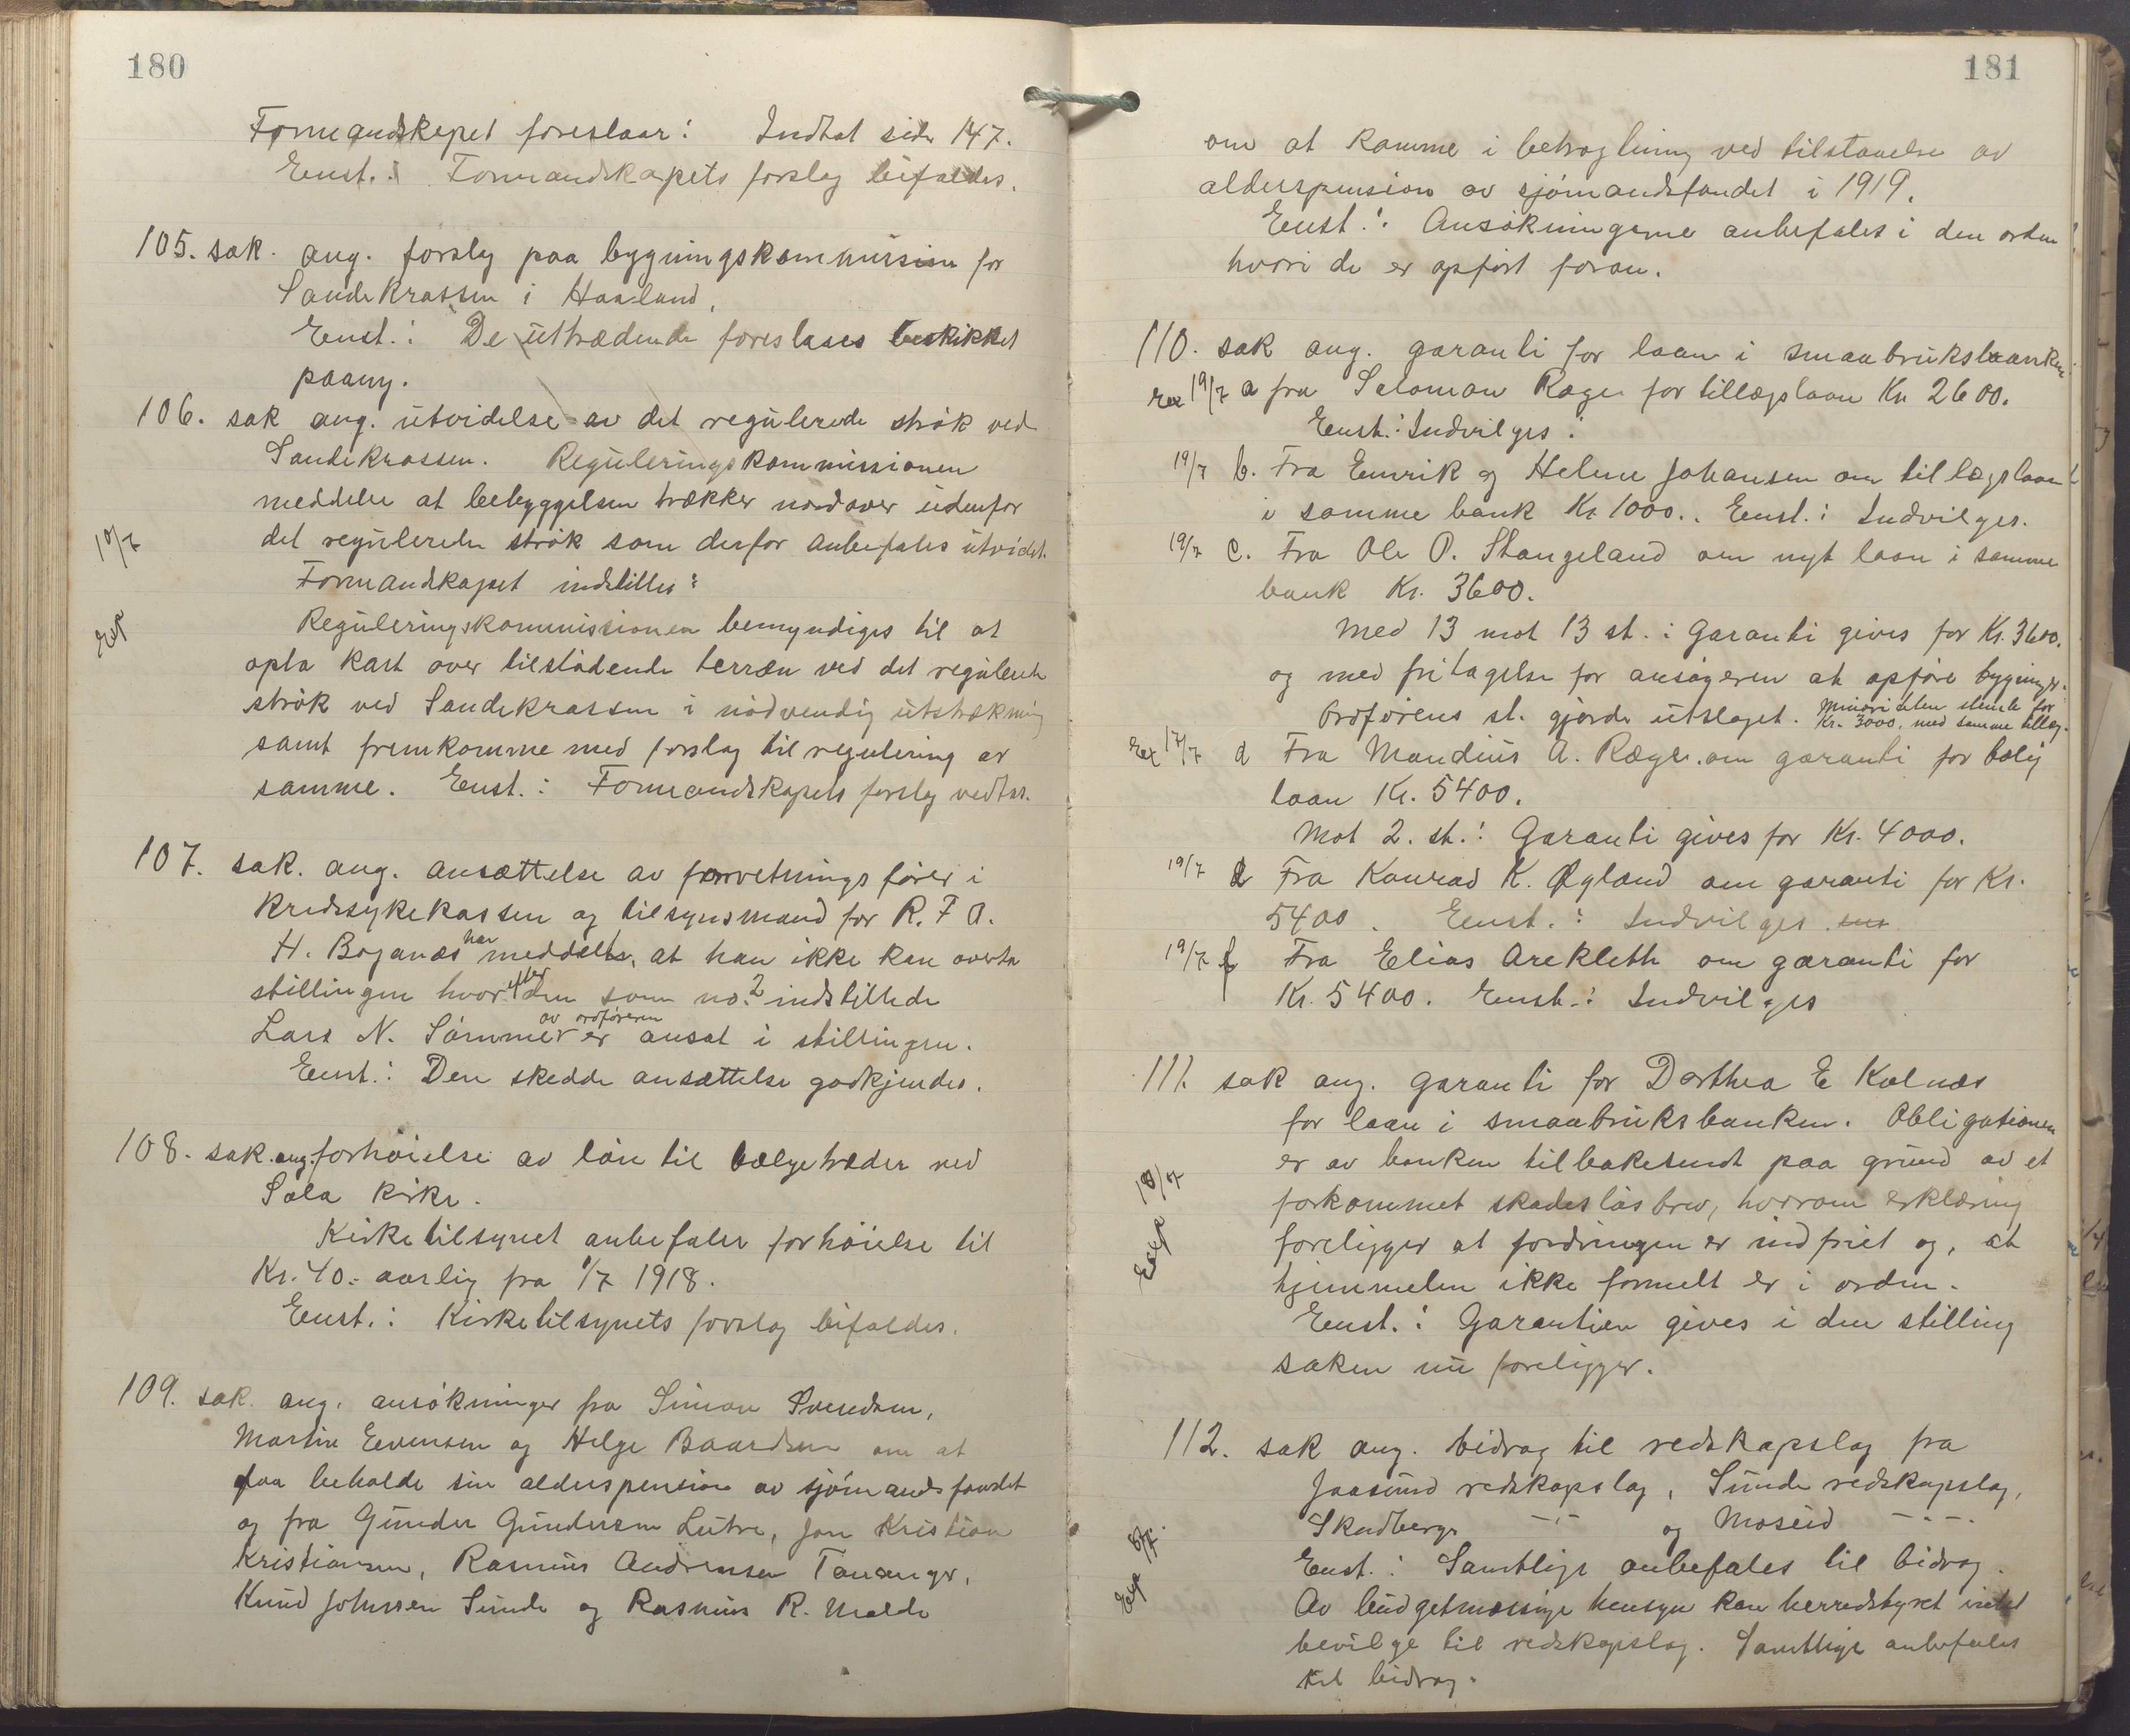 180
Formandskapet foreslaar: Indtat side 147.
Enst.: Formandskapets forslag bifaldes.
105. sak. ang. forslag paa bygningskommission for
Sandekrossen i Haaland.
Enst.: De uttrædende foreslaaes beskikket
paany.
106. sak ang. utvidelse av det regulerede strøk ved
Sandekrossen. Reguleringskommissionen
meddeler at bebyggelsen trækker nordover udenfor
10/7 det regulerede strøk som derfor anbefales utvidet.
Formandskapet indstiller:
Exp Reguleringskommissionen bemyndiges til at
opta kart over tilstødende terræn ved det regulerte
strøk ved Sandekrossen i nødvendig utstrækning
samt fremkomme med forslag til regulering av
samme. Enst.: Formandskapets forslag vedtas.
107. sak. ang. ansættelse av forretningsfører i
kredssykekassen og tilsynsmand for R. F A.
H. Bøganæs har meddelt, at han ikke kan overta
stillingen hvorefter den som no. 2 indstillede
Lars N. Sømme av ordføreren er ansat i stillingen.
Enst.: Den skedde ansættelse godkjendes.
108. sak. ang. forhøielse av løn til bælgetræder ved
Sola kirke.
Kirketilsynet anbefaler forhøielse til
Kr. 40.- aarlig fra 1/7 1918.
Enst.: Kirketilsynets forslag bifaldes.
109. sak. ang. ansøkninger fra Simon Svendsen,
Martin Evensen og Helge Baardsen om at
faa beholde sin alderspension av sjømandsfondet
og fra Gunder Gundersen Lutre, Jon Kristian
Kristiansen, Rasmus Andreassen Tananger,
Knud Johnsen Sunde og Rasmus R. Molde
181
om at komme i betragtning ved tilstaaelse av
alderspension av sjømandsfondet i 1919.
Enst.: Ansøkningerne anbefales i den orden
hvori de er opført foran.
110. sak ang. garanti for laan i smaabruksbanken.
Ex 19/7 a fra Salomon Ræge for tillægslaan Kr 2600.
Enst.: Indvilges.
19/7 b. Fra Emrik og Helene Johansen om tillægslaan
i samme bank Kr 1000.. Enst.: Indvilges.
19/7 c. Fra Ole O. Stangeland om nyt laan i samme
bank Kr. 3600.
Med 13 mot 13 st.: Garanti gives for Kr. 3600.
og med fritagelse for ansøgeren at opføre bygninger.
Ordførerens st. gjorde utslaget. Minoriteten stemte for
Kr. 3000. med samme tillæg.
Ex 17/7 d Fra Mandius A. Ræge. om garanti for bolig
laan Kr. 5400.
Mot 2. st.: Garanti gives for Kr. 4000.
19/7 Fra Konrad K. Øgland om garanti for Kr.
5400. Enst.: Indvilges.
19/7 f Fra Elias Arekleth om garanti for
Kr. 5400. Enst.: Indvilges
111. sak ang. garanti for Dorthea E Kolnæs
for laan i smaabruksbanken. Obligationen
er av banken tilbakesendt paa grund av et
18/7 forkommet skadesløsbrev, hvorom erklæring
Exp foreligger at fordringen er indfriet og, at
hjemmelen ikke formelt er i orden.
Enst.: Garantien gives i den stilling
saken nu foreligger.
112. sak ang. bidrag til redskapslag fra
Jaasund redskapslag, Sunde redskapslag,
Skadberg -"- og Moseid -"-.
Exp Enst.: Samtlige anbefales til bidrag.
Av budgetmæssige hensyn kan herredstyret intet
bevilge til redskapslag. Samtlige anbefales
til bidrag.